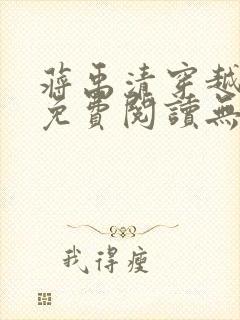 蔣禹清穿越
免費閱讀無
我得瘦